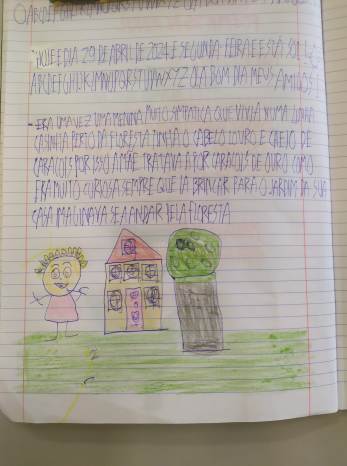 OABCDEFGHIJKLMNOPQRSTUVWXYZ OLA BOM
HOJE E DIA 29 DE ABRIL DE 2024 E SEGUNDA FEIRA E ESTA SOL
ABCDEFGHIJKLMNOPQRSTUVWXYZ OLA BOM DIA MEUS AMIGOS
- ERA UMA VEZ UMA MENINA MUITO SIMPATICA QUE VIVIA NUMA LINDA
CASINHA PERTO DA FLORESTA TINHA O CABELO LOURO E CHEIO DE
CARACOIS POR ISSO A MAE TRATAVA A POR CARACOIS DE OURO COMO
ERA MUITO CURIOSA SEMPRE QUE IA BRINCAR PARA O JARDIM DA SUA
CASA IMAGINAVA SE A ANDAR PELA FLORESTA